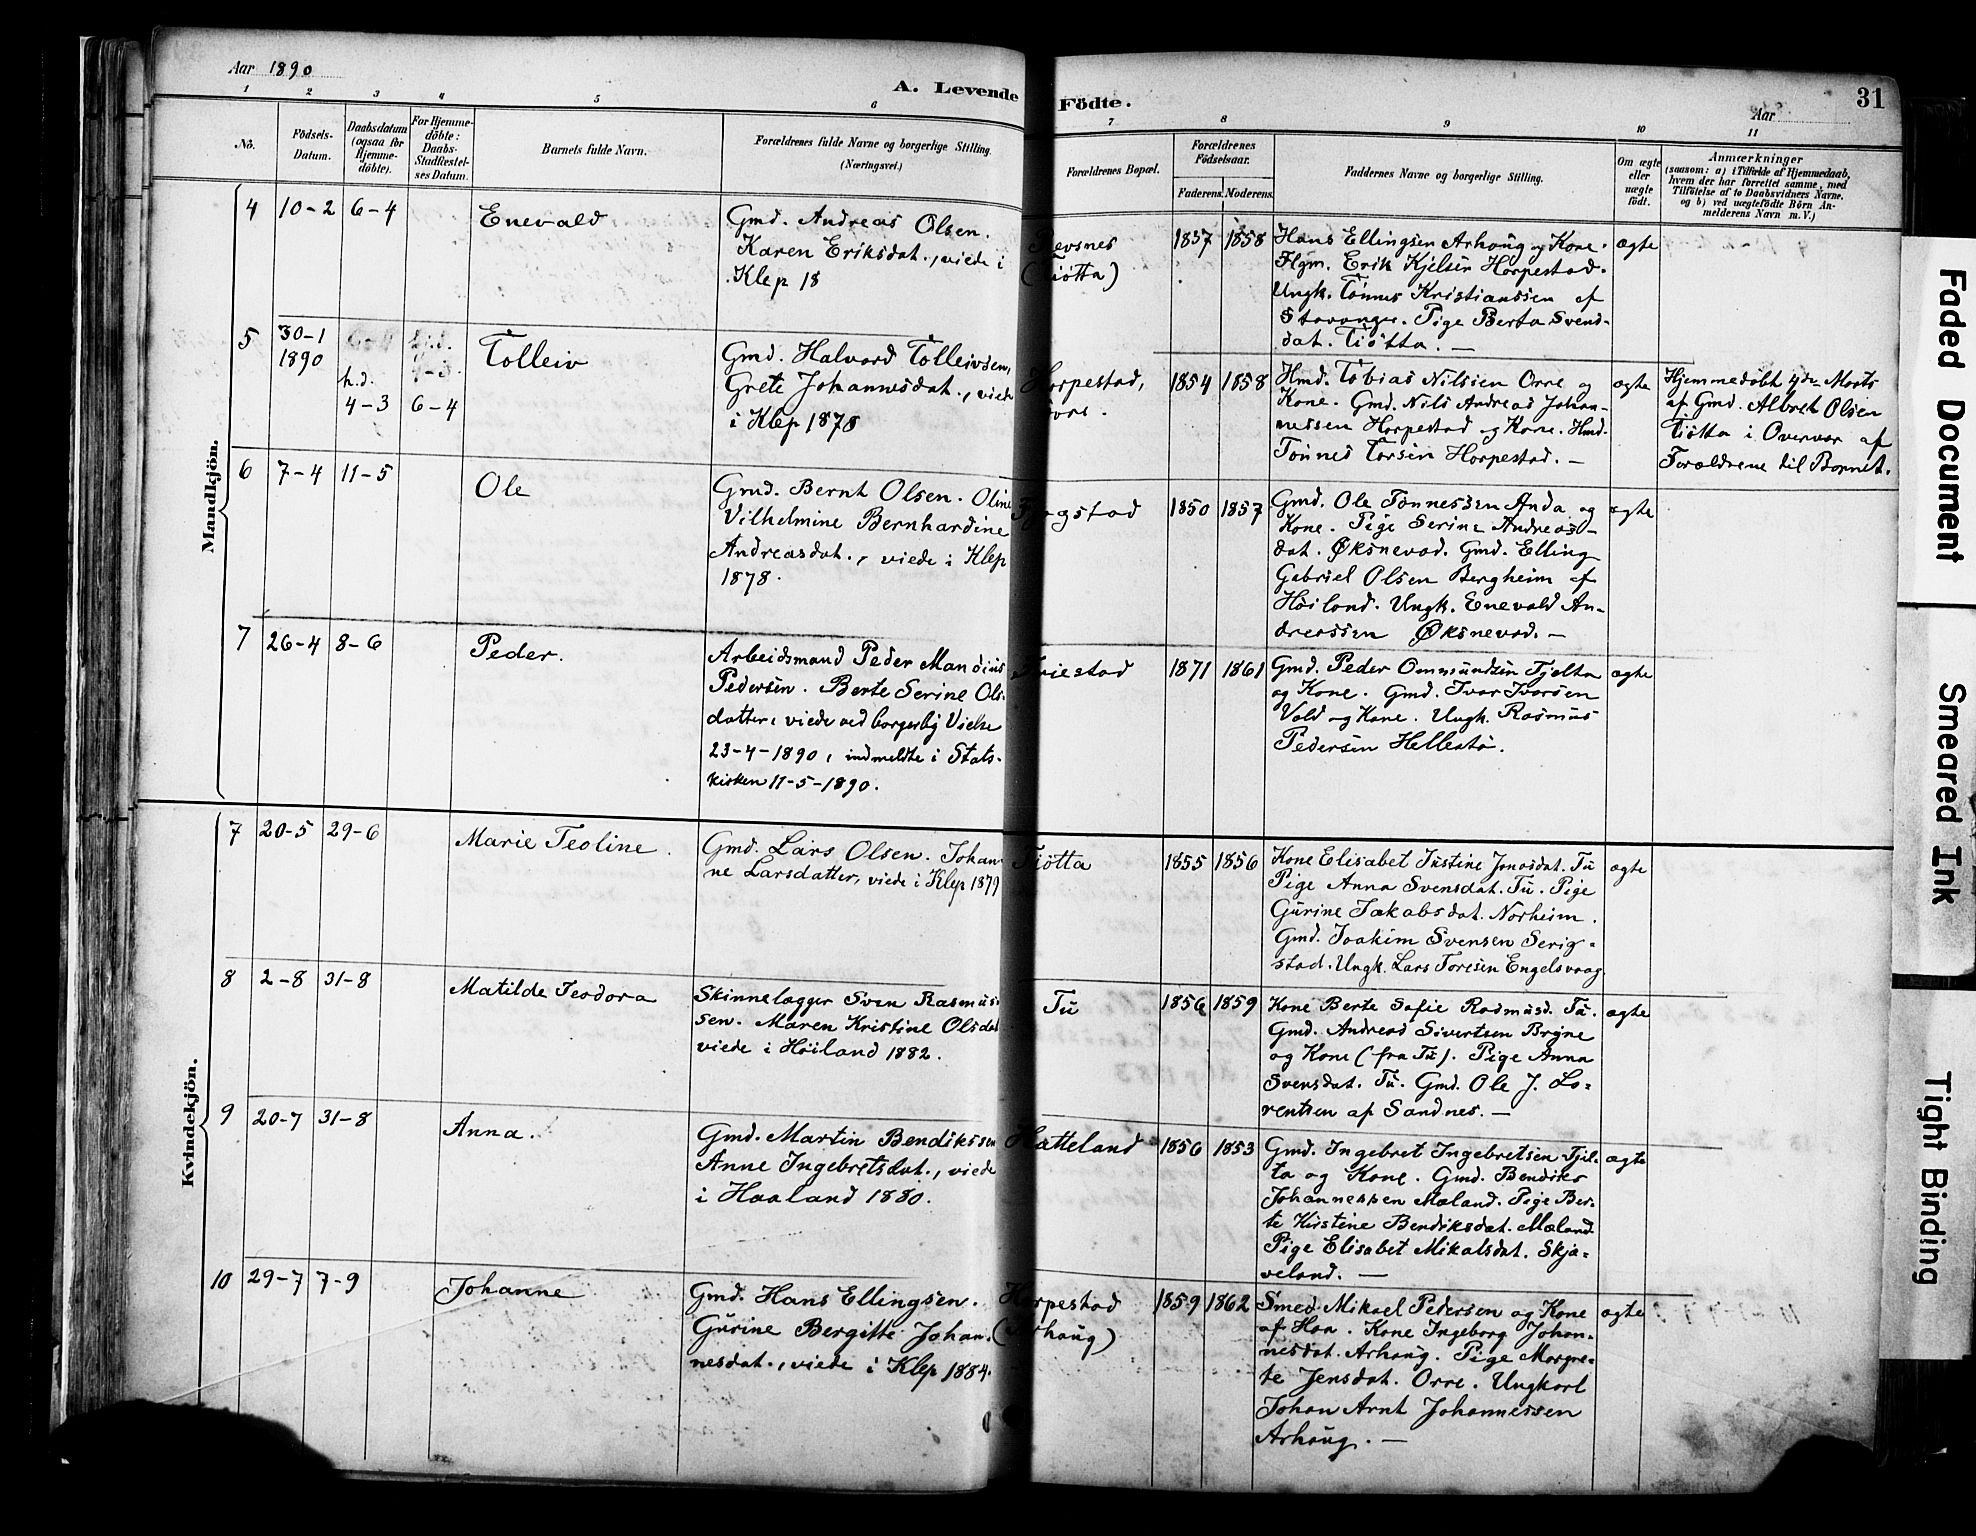 Aar 1890
A. Levende Födte.
Aar
31
1 2 3 4 5 6 7 8 9 10 11
No.
Födsels-
Datum.
Daabsdatum
(ogsaa for
Hjemme-
döbte).
For Hjemme-
döbte:
Daabs-
Stadfæstel-
ses Datum.
Barnets fulde Navn.
Forældrenes fulde Navne og borgerlige Stilling.
(Næringsvei.)
Forældrenes Bopæl.
Forældrenes
Födselsaar.
Faderens. Moderens.
Faddernes Navne og borgerlige Stilling.
Om ægte
eller
uægte
födt.
Anmærkninger
(saasom: a) i Tilfælde af Hjemmedaab,
hvem der har forrettet samme, med
Tilföielse af to Daabsvidners Navne,
og b) ved uægtefödte Börn An-
melderens Navn m. V.)
Mandkjön.
4 10-2 6-4 Enevald
Gmd. Andreas Olsen.
Karen Eriksdat., viede i
Klep 18
Revsnes
(Tiøtta)
1837 1858
Hans Ellingsen Arhaug og Kone.
Flgm. Erik Kjelsen Horpestad.
Ungk. Tønnes Kristianssen af
Stavanger. Pige Berta Svend-
dat. Tiøtta. —
ægte
5 30-1
1890
h.d.
4-3 6-4
Tolleiv
Gmd. Halvard Tolleivsen,
Grete Johannesdat., viede
i Klep 1878
Horpestad,
1854 1858
Hmd. Tobias Nilssen Orre og
Kone. Gmd. Nils Andreas Johan-
nessen Horpestad og Kone. Hmd.
Tønnes Torsen Horpestad. —
ægte
Hjemmedøbt 4de Marts
af Gmd. Albret Olsen
Tiøtta i Overvær af
Forældrene til Barnet.
6 7-4 11-5 Ole
Gmd. Bernt Olsen. Oline
Vilhelmine Bernhardine
Andreasdat., viede i Klep
1878.
1850 1857
Gmd. Ole Tønnessen Anda og
Kone. Pige Serine Andreas-
dat. Øksnevad. Gmd. Elling
Gabriel Olsen Bergheim af
Høiland. Ungk. Enevald An-
dreassen Øksnevad. —
ægte
7 26-4 8-6 Peder.
Arbeidsmand Peder Mandius
Pedersen. Berte Serine Ols-
datter, viede ved borgerlig Vielse
23-4-1890, indmeldte i Stats-
kirken 11-5-1890.
Friestad
1871 1861
Gmd. Peder Ommundsen Tjelta
og Kone. Gmd. Ivar Ivarsen
Vold og Kone. Ungk. Rasmus
Pedersen Hellestø.
ægte
Kvindekjön.
7 20-5 29-6 Marie Teoline.
Gmd. Lars Olsen. Johan-
ne Larsdatter, viede i Klep 1879
Tiøtta
1855 1856
Kone Elisabet Justine Jonasdat. Tu
Pige Anna Svensdat. Tu. Pige
Gurine Jakobsdat. Norheim.
Gmd. Joakim Svensen Serig-
stad. Ungk. Lars Toresen Engelsvaag
ægte
8 2-8 31-8 Matilde Teodora
Skinnelægger Sven Rasmus-
sen. Maren Kristine Olsdat
viede i Høiland 1882.
Tu
1856 1859
Kone Berte Sofie Rasmusd. Tu.
Gmd. Andreas Sivertsen Bryne
og Kone (fra Tu). Pige Anna
Svensdat. Tu. Gmd. Ole J. Lo-
rentsen af Sandnes. —
ægte
9 20-7 31-8 Anna.
Gmd. Martin Bendikssen
Anne Ingebretsdat., viede
i Haaland 1880.
Hatteland
1856 1853
Gmd. Ingebret Ingebretsen Tjel-
ta og Kone. Gmd. Bendiks
Johannessen Mæland. Pige Ber-
te Kirstine Bendiksdat. Mæland
Pige Elisabet Mikalsdat. Skja-
veland. —
ægte
10 29-7 7-9 Johanne
Gmd. Hans Ellingsen.
Gurine Bergitte Johan-
nesdat., viede i Klep 1884.
Horpestad
(Arhaug)
1859 1862
Smed Mikael Pedersen og Kone
af Haa. Kone Ingeborg Johan-
nesdat. Arhaug. Pige Margre-
te Jensdat. Orre. Ungkarl
Johan Arnt Johannessen
Arhaug. —
ægte
Faded Document
Smeared Ink
Tight Binding